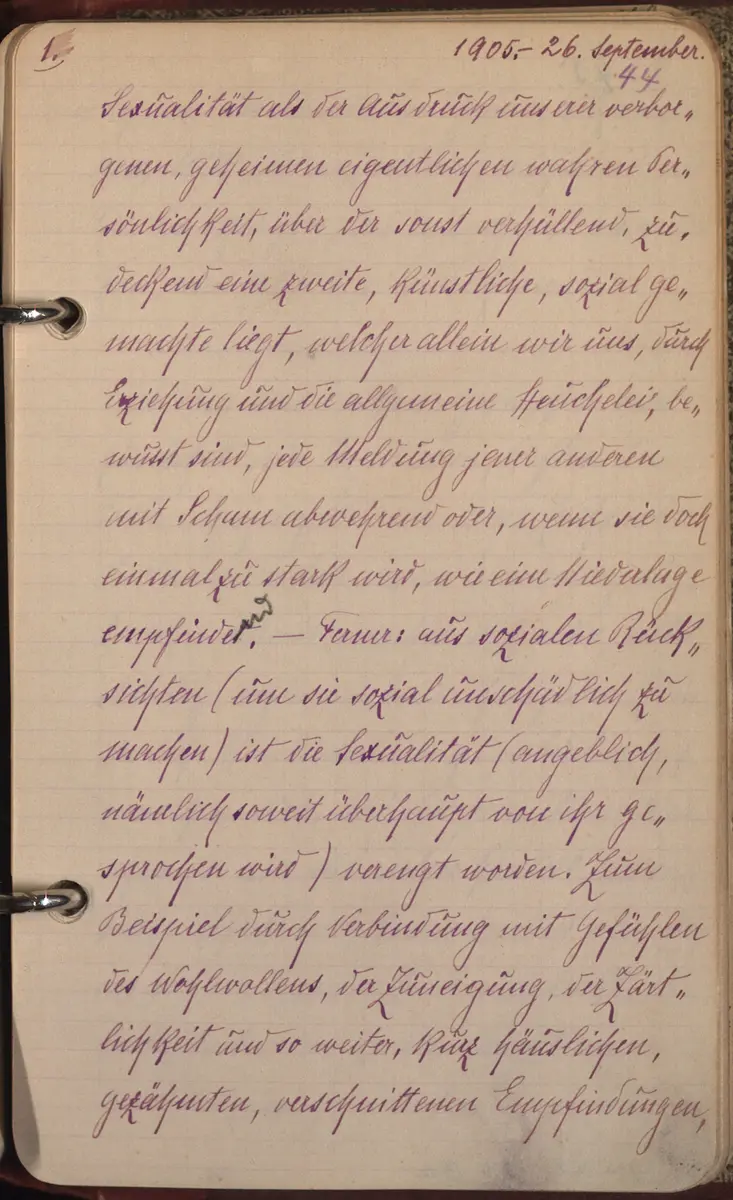 1. 1905.- 26. September.
44
Sexualität als der Ausdruck unserer verbor„
genen, geheimen eigentlichen wahren Per„
sönlichkeit, über der sonst verhüllend, zu„
deckend eine zweite, künstliche, sozial ge„
machte liegt, welcher allein wir uns, durch
Erziehung und die allgemeine Heuchelei, be„
wusst sind, jede Meldung jener anderen
mit Scham abwehrend oder, wenn sie doch
einmal zu stark wird, wie eine Niederlage
empfindend. — Ferner: aus sozialen Rück„
sichten (um sie sozial unschädlich zu
machen) ist die Sexualität (angeblich,
nämlich soweit überhaupt von ihr ge„
sprochen wird) verengt worden. Zum
Beispiel durch Verbindung mit Gefühlen
des Wohlwollens, der Zuneigung, der Zärt„
lichkeit und so weiter, kurz häuslichen,
gezähmten, verschnittenen Empfindungen,